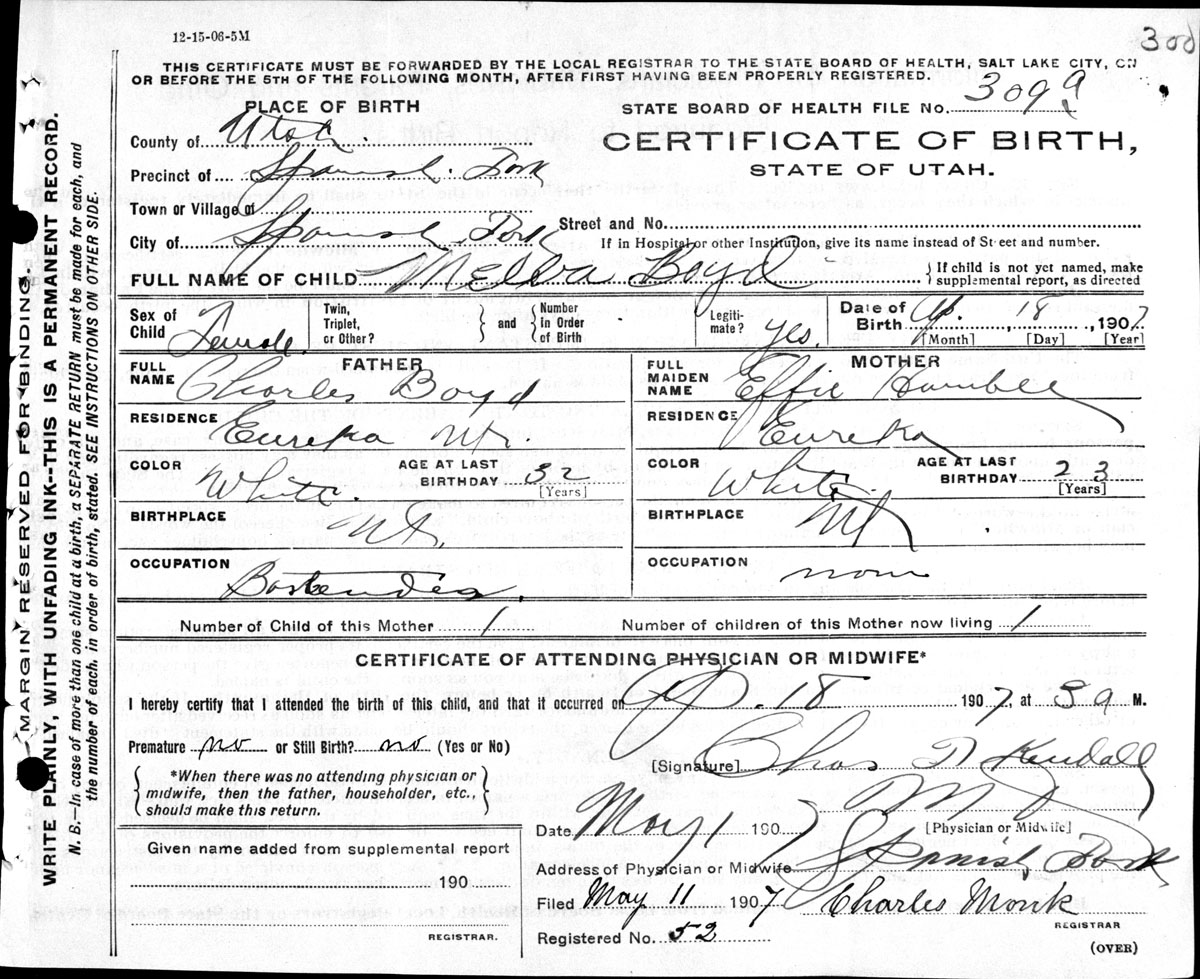 12-15-06-5M
300
THIS CERTIFICATE MUST BE FORWARDED BY THE LOCAL REGISTRAR TO THE STATE BOARD OF HEALTH, SALT LAKE CITY, ON
OR BEFORE THE 5TH OF THE FOLLOWING MONTH, AFTER FIRST HAVING BEEN PROPERLY REGISTERED.
PLACE OF BIRTH
STATE BOARD OF HEALTH FILE NO. 3099
County of Utah.
CERTIFICATE OF BIRTH,
STATE OF UTAH.
Precinct of Spanish Fork
Town or Village of
Street and No.
City of Spanish Fork
If in Hospital or other Institution, give its name instead of Street and number.
FULL NAME OF CHILD Melba Boyd
If child is not yet named, make
supplemental report, as directed
Sex of Child Female.
Twin, Triplet, or Other?
and Number In Order of Birth
Legitimate? yes.
Date of Birth Ap. 18, 1907
[Month] [Day] [Year]
FATHER
FULL NAME Charles Boyd
RESIDENCE Eureka Ut.
COLOR White.
AGE AT LAST BIRTHDAY 32
[Years]
BIRTHPLACE Ut.
OCCUPATION Bartender.
MOTHER
FULL MAIDEN NAME Effie
RESIDENCE Eureka
COLOR White.
AGE AT LAST BIRTHDAY 23
[Years]
BIRTHPLACE Ut
OCCUPATION none
Number of Child of this Mother 1
Number of children of this Mother now living 1
CERTIFICATE OF ATTENDING PHYSICIAN OR MIDWIFE*
I hereby certify that I attended the birth of this child, and that it occurred on Ap. 18 1907, at 5 a M.
Premature no or Still Birth? no (Yes or No)
*When there was no attending physician or
midwife, then the father, householder, etc.,
should make this return.
Given name added from supplemental report
190
REGISTRAR.
[Signature] Chas Kendall
MD
[Physician or Midwife]
Date May 1 1907
Address of Physician or Midwife Spanish Fork
Filed May 11 1907 Charles Monk
REGISTRAR
Registered No. 52
(OVER)
MARGIN RESERVED FOR BINDING.
WRITE PLAINLY, WITH UNFADING INK--THIS IS A PERMANENT RECORD.
N. B.—In case of more than one child at a birth, a SEPARATE RETURN must be made for each, and
the number of each, in order of birth, stated. SEE INSTRUCTIONS ON OTHER SIDE.